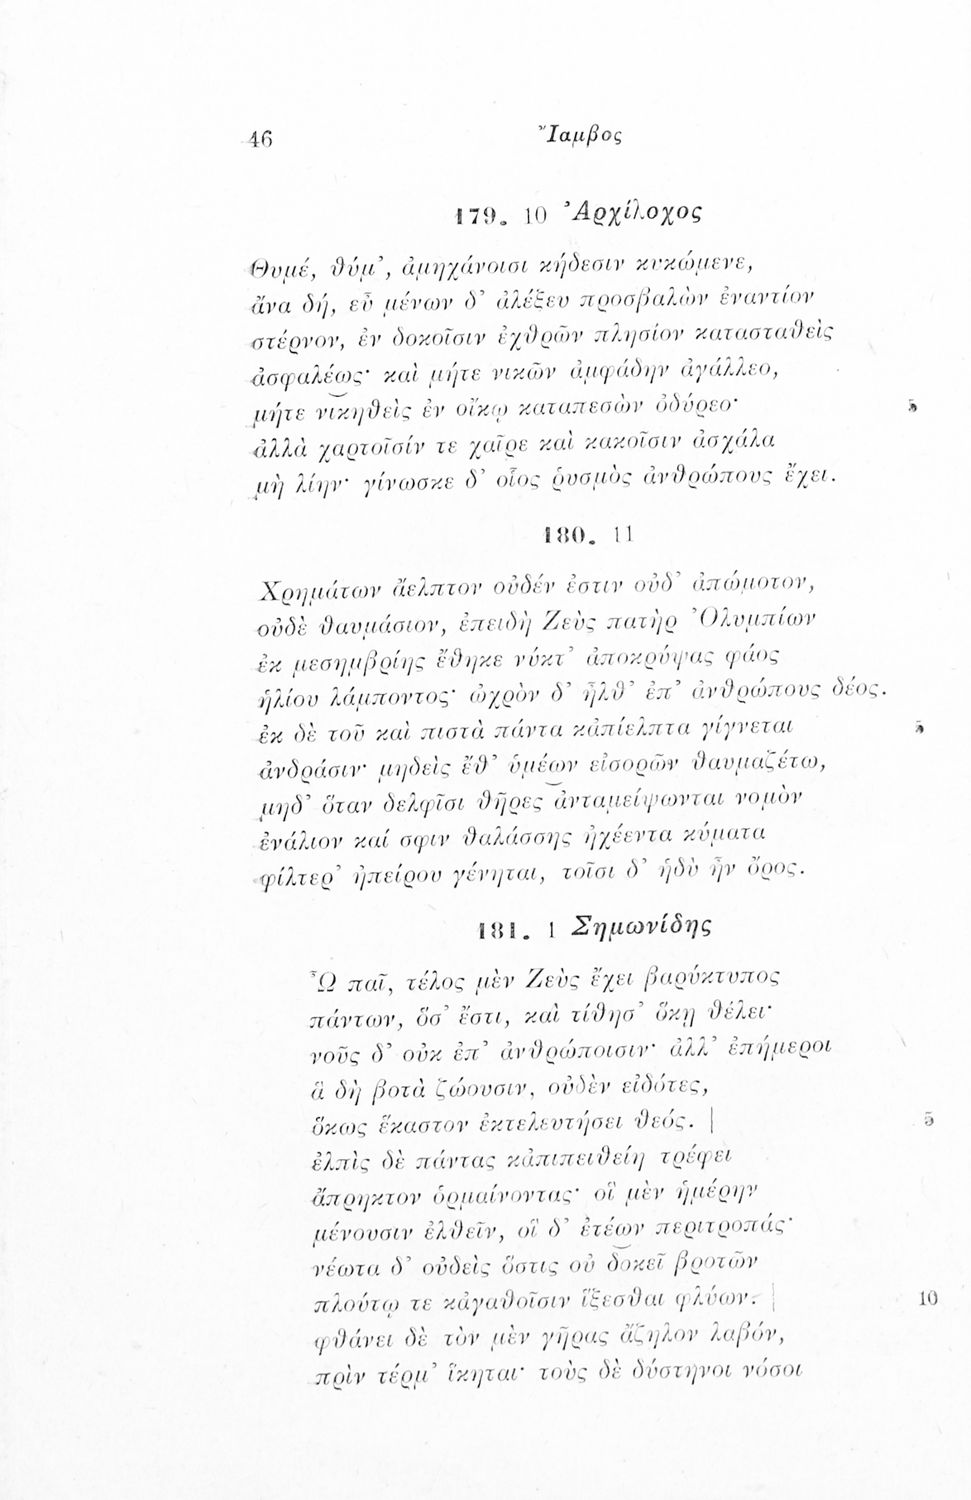 46 Ἴαμβος
179. 10 Ἀρχίλοχος
Θυμέ, θύμ’, ἀμηχάνοισι κήδεσιν κυκώμενε,
ἄνα δή, εὖ μένων δ’ ἀλέξευ προσβαλὼν ἐναντίον
στέρνον, ἐν δοκοῖσιν ἐχθρῶν πλησίον κατασταθεὶς
ἀσφαλέως· καὶ μήτε νικῶν ἀμφάδην ἀγάλλεο,
μήτε νικηθεὶς ἐν οἴκῳ καταπεσὼν ὀδύρεο· 5
ἀλλὰ χαρτοῖσίν τε χαῖρε καὶ κακοῖσιν ἀσχάλα
μὴ λίην· γίνωσκε δ’ οἷος ῥυσμὸς ἀνθρώπους ἔχει.
180. 11
Χρημάτων ἄελπτον οὐδέν ἐστιν οὐδ’ ἀπώμοτον,
οὐδὲ θαυμάσιον, ἐπειδὴ Ζεὺς πατὴρ Ὀλυμπίων
ἐκ μεσημβρίης ἔθηκε νύκτ’ ἀποκρύψας φάος
ἡλίου λάμποντος· ὠχρὸν δ’ ἦλθ’ ἐπ’ ἀνθρώπους δέος.
ἐκ δὲ τοῦ καὶ πιστὰ πάντα κἀπίελπτα γίγνεται 5
ἀνδράσιν· μηδεὶς ἔθ’ ὑμέων εἰσορῶν θαυμαζέτω,
μηδ’ ὅταν δελφῖσι θῆρες ἀνταμείψωνται νομὸν
ἐνάλιον καί σφιν θαλάσσης ἠχέεντα κύματα
φίλτερ’ ἠπείρου γένηται, τοῖσι δ’ ἡδὺ ἦν ὄρος.
181. 1 Σημωνίδης
Ὦ παῖ, τέλος μὲν Ζεὺς ἔχει βαρύκτυπος
πάντων, ὅσ’ ἔστι, καὶ τίθησ’ ὅκῃ θέλει·
νοῦς δ’ οὐκ ἐπ’ ἀνθρώποισιν· ἀλλ’ ἐπήμεροι
ἃ δὴ βοτὰ ζώουσιν, οὐδὲν εἰδότες,
ὅκως ἕκαστον ἐκτελευτήσει θεός. | 5
ἐλπὶς δὲ πάντας κἀπιπειθείη τρέφει
ἄπρηκτον ὁρμαίνοντας· οἳ μὲν ἡμέρην
μένουσιν ἐλθεῖν, οἳ δ’ ἐτέων περιτροπάς·
νέωτα δ’ οὐδεὶς ὅστις οὐ δοκεῖ βροτῶν
πλούτῳ τε κἀγαθοῖσιν ἵξεσθαι φλύων. | 10
φθάνει δὲ τὸν μὲν γῆρας ἄζηλον λαβόν,
πρὶν τέρμ’ ἵκηται· τοὺς δὲ δύστηνοι νόσοι